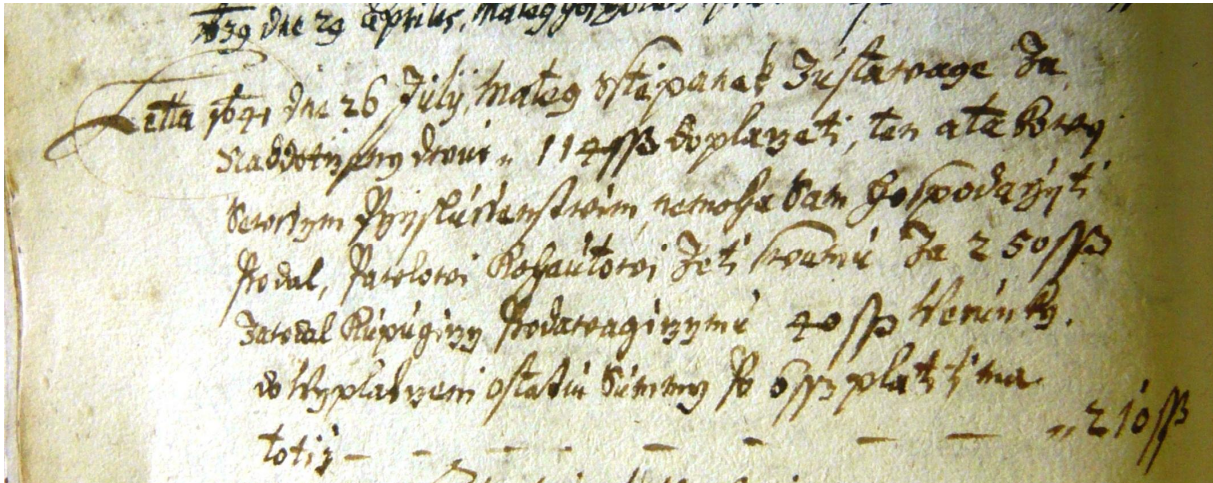 1639 dne 29 Aprilis, Mateg
Letha 1641 dne 26 July, Mateg Sstiepanek Zustawage Za
Naddotczeny dwur „ 114 ssß doplaczeti, ten a takowy
Sewssym Przyslussenstwim, nemoha Sam hospodarzyti
Prodal, Pawlowi Kohautowi Zeti swemu Za 250 ssß
Zawdal Kupugiczy Prodawagiczymu 40 ssß Werunku,
do Wyplaczeni ostatni Summy Po 6 ssß platiti ma
totiz — — — — — — — „ 210 ssß